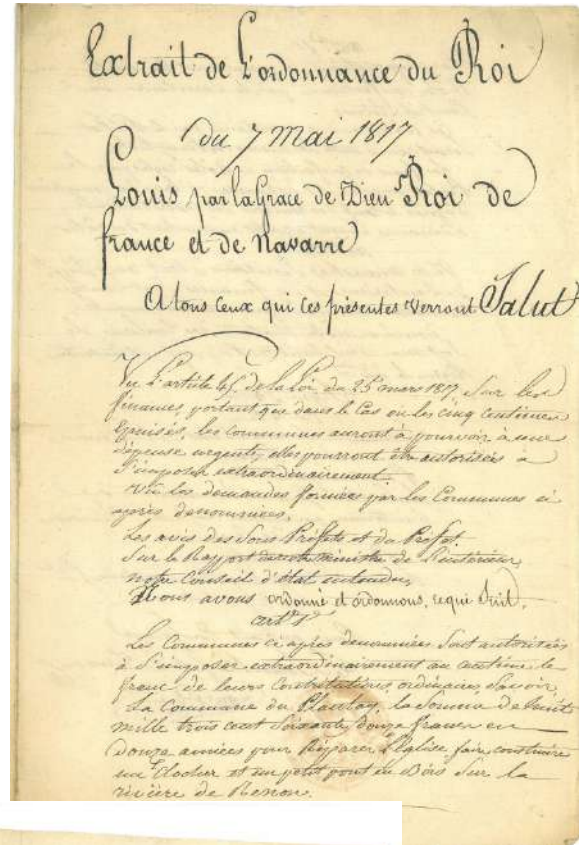 Extrait de L'ordonnance du Roi
du 7 mai 1817
Louis par la Grace de Dieu Roi de
france et de Navarre
A tous ceux qui ces présentes verront Salut
Vu L'article de la Loi du 25 mars 1817 Sur les
finances, portant que dans le Cas ou les cinq centimes
Epuisés, les communes auront à pourvoir à une
dépense urgente, elles pourront être autorisées à
S'imposer extraordinairement
Vu les demandes formées par les Communes ci
après denommées,
Les avis des Sous Préfets et du Préfet.
Sur le Rapport de notre ministre de L'intérieur,
notre Conseil d'état entendu,
Nous avons ordonné et ordonnons, ce qui Suit.
art. 1er
Les Communes ci après denommées Sont autorisées
à S'imposer extraordinairement au centime le
franc de leurs Contributions ordinaires Savoir,
La Commune du Plantay, la Somme de huit
mille trois cent Soixante douze francs en
douze années pour Réparer L'Eglise faire construire
un Clocher et un petit pont en Bois Sur la
rivière de Renon.